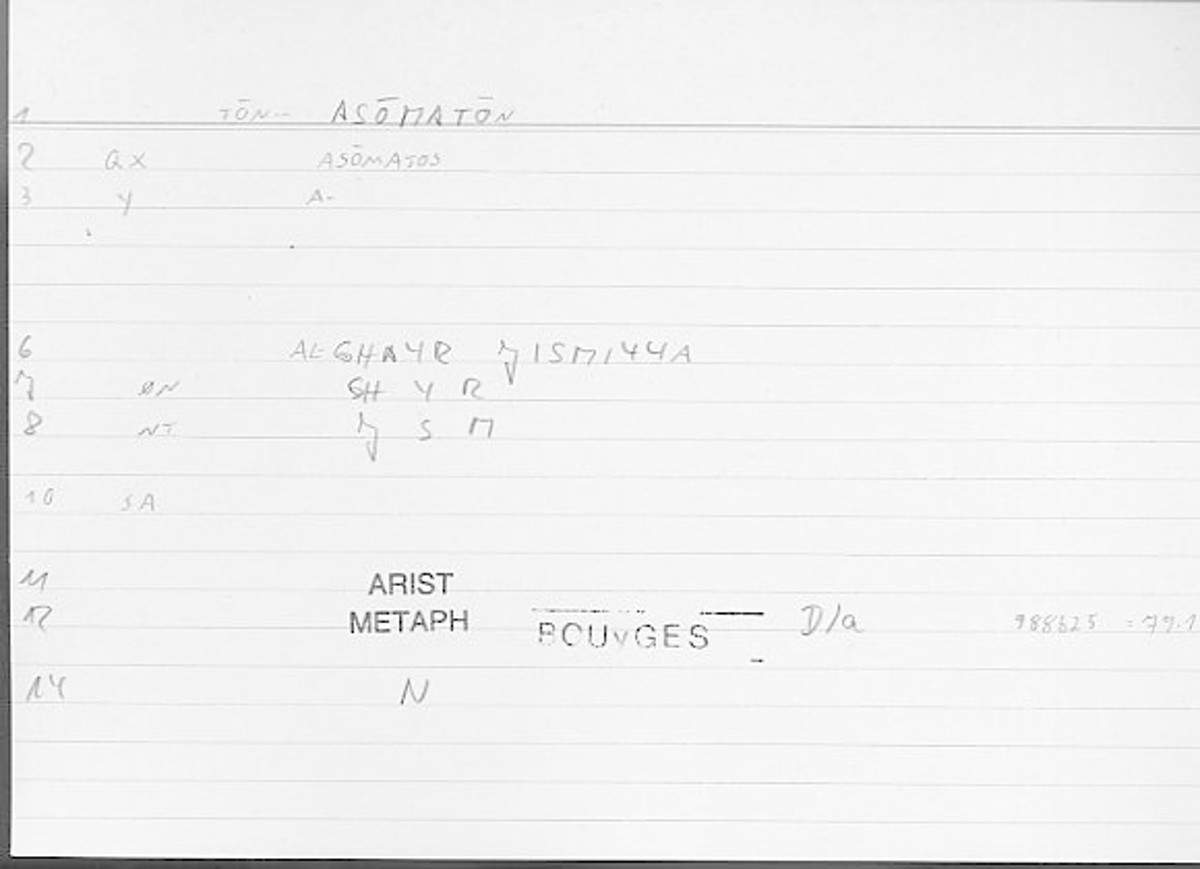 1 TŌN-- ASŌMATŌN
2 QX ASŌMATOS
3 Y A-
6 AL-GHAYR JISMIYYA
7 ØN GH Y R
8 NT J S M
10 SA
11 ARIST
12 METAPH BOUYGES D/a
14 N